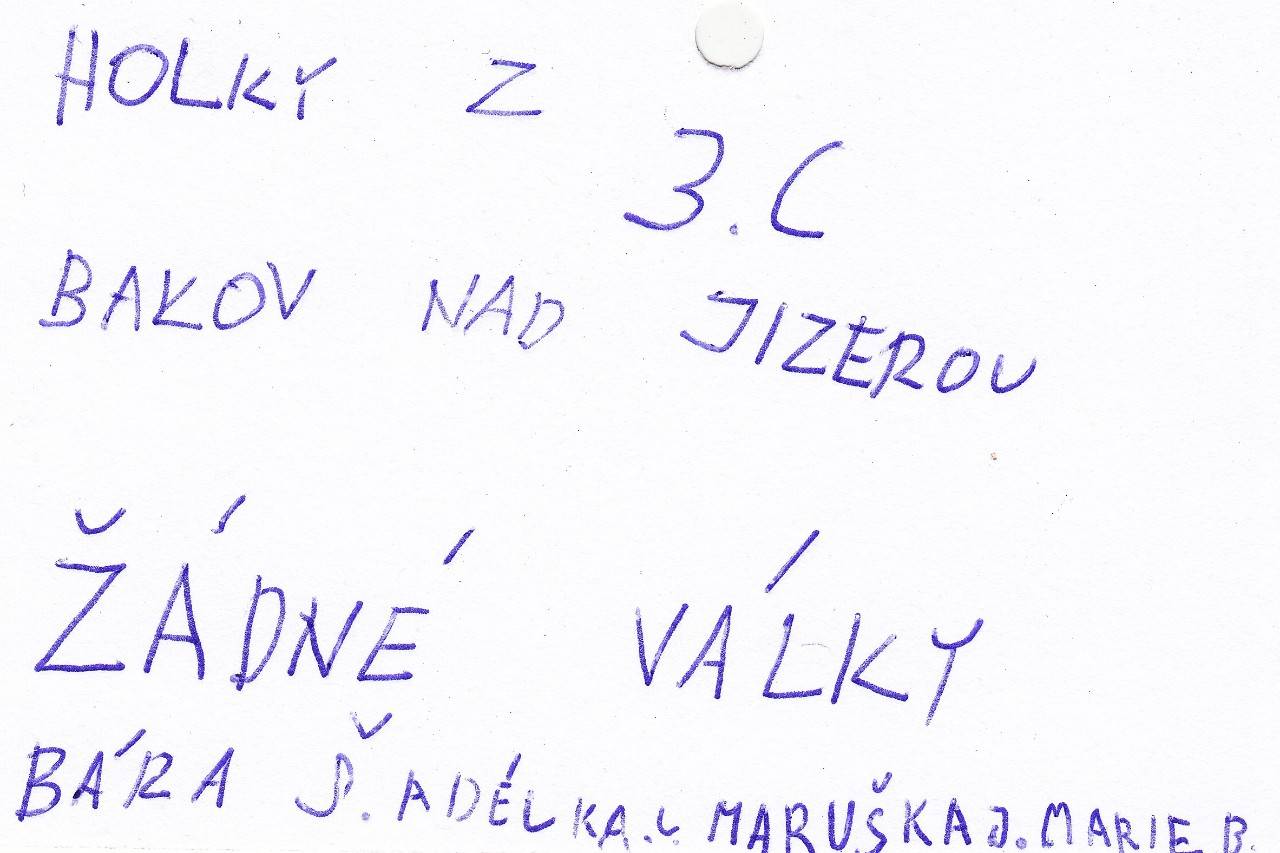 HOLKY Z
3.C
BAKOV NAD JIZEROU
ŽÁDNÉ VÁLKY
BÁRA Š. ADÉLKA.L MARUŠKA J. MARIE B.